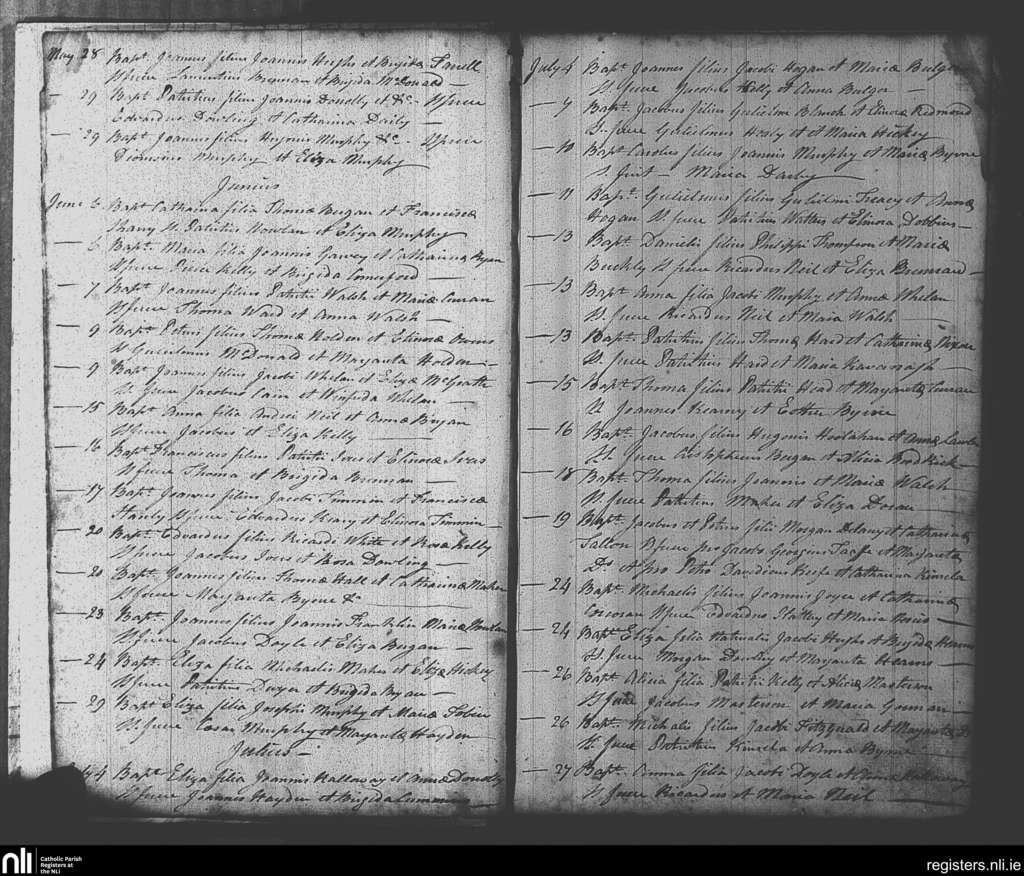 May 28 Bapt. Joannes filius Joannis Hughs et Brigida Farrell
Sp. fuere Laurentius Brennan et Brigda McDonald
- 29 Bapt. Patritius filius Joannis Donolly et &c. Sp. fuere
Edvardus Dowling et Catharina Daily
- 29 Bapt. Joannes filius Hugonis Murphy &c. Sp. fuere
Dionisius Murphy et Eliza Murphy
Junius
June Bapt. Catharina filia Thomæ Bergan et Franciscæ
Sp. Patritius Nowlan et Eliza Murphy
- 6 Bapt. Maria filia Joannis Garvey et Catharinæ Byrne
Sp. fuere Peter Kelly et Brigida Comerford
- 7 Bapt. Joannes filius Patritii Walsh et Mariæ Curran
Sp. fuere Thoma Ward et Anna Walsh
- 9 Bapt. Petrus filius Thomæ Holden et Elinoræ
Sp. Gulielmus McDonald et Margarita Holden
- 9 Bapt. Joannes filius Jacobi Whelan et Elizæ McGrath
Sp. fuere Jacobus Cain et Winifrida Whelan
- 15 Bapt. Anna filia Andreæ Neil et Annæ Bryan
Sp. fuere Jacobus et Eliza Kelly
- 16 Bapt. Franciscus filius Patritii Ivers et Elinoræ Ivers
Sp. fuere Thoma et Brigida Brennan
- 17 Bapt. Joannes filius Jacobi Timmin et Franciscæ
Hanly Sp. fuere Edvardus Keary et Elinora Timmin
- 20 Bapt. Edvardus filius Ricardi White et Rosæ Kelly
Sp. fuere Jacobus Ivers et Rosa Dowling
- 20 Bapt. Joannes filius Thomæ Hall et Catharinæ Maher
Sp. fuere Margarita Byrne &c
- 23 Bapt. Joannes filius Joannis Franklin Mariæ Nowlan
Sp. fuere Jacobus Doyle et Eliza Bergan
- 24 Bapt. Eliza filia Michaelis Maher et Elizæ Hickey
Sp. fuere Patritius Dwyer et Brigida Ryan
- 29 Bapt. Eliza filia Josephi Murphy et Mariæ Tobin
Sp. fuere Murphy et Margarita Hayden
Julius
July 4 Bapt. Eliza filia Joannis Hallaway et Annæ Donolly
Sp. fuere Joannes Hayden et Brigida Cummins
July 4 Bapt. Joannes filius Jacobi Hogan et Mariæ Bulger
Sp. fuere Jacobus Kelly et Anna Bulger
- 9 Bapt. Jacobus filius Gulielmi Blanch et Elinoræ Redmond
Sp. fuere Gulielmus Healy et Maria Hickey
- 10 Bapt. Carolus filius Joannis Murphy et Mariæ Byrne
S. fuit Maria Darby
- 11 Bapt. Gulielmus filius Gulielmi Treacy et Annæ
Hogan Sp. fuere Patritius Watters et Elinora Dobbins
- 13 Bapt. Daniels filius Philippi Thompson et Mariæ
Berkly Sp. fuere Ricardus Neil et Eliza Brennan
- 13 Bapt. Anna filia Jacobi Murphy et Annæ Whelan
Sp. fuere Ricardus Neil et Maria Walsh
- 13 Bapt. Patritius filius Thomæ Hard et Catharinæ
Sp. fuere Patritius Hard et Maria Kavanagh
- 15 Bapt. Thoma filius Patritii Head et Margaritæ Curran
Sp. Joannes Kearny et Esther Byrne
- 16 Bapt. Jacobus filius Hugonis Hoolahan et Annæ Lawler
Sp. fuere Cristopherus Bergan et Alicia Brodrick
- 18 Bapt. Thoma filius Joannis et Mariæ Walsh
Sp. fuere Patritius Maher et Eliza Doran
- 19 Bapt. Jacobus et Petrus filii Morgan Delany et Catharinæ
Fallon Sp. fuere pro Jacobo Georgius Taaffe et Margarita
Do. et pro Petro Davidicus Keefe et Catharina Kinsela
- 24 Bapt. Michaelis filius Joannis Joyce et Catharinæ
Corcoran Sp. fuere Edvardus Slattery et Maria
- 24 Bapt. Eliza filia Naturalis Jacobi Hughs et Brigidæ Hearns
Sp. fuere Morgan Dowling et Margarita Hearns
- 26 Bapt. Alicia filia Patritii Kelly et Aliciæ Masterson
Sp. fuere Jacobus Masterson et Maria Gorman
- 26 Bapt. Michalis filius Jacobi Fitzgerald et Margaritæ Do
Sp. fuere Patritius Kinsela et Anna Byrne
- 27 Bapt. Anna filia Jacobi Doyle et Annæ Hallaway
Sp. fuere Ricardus et Maria Neil
nli Catholic Parish
Registers at
the NLI
registers.nli.ie